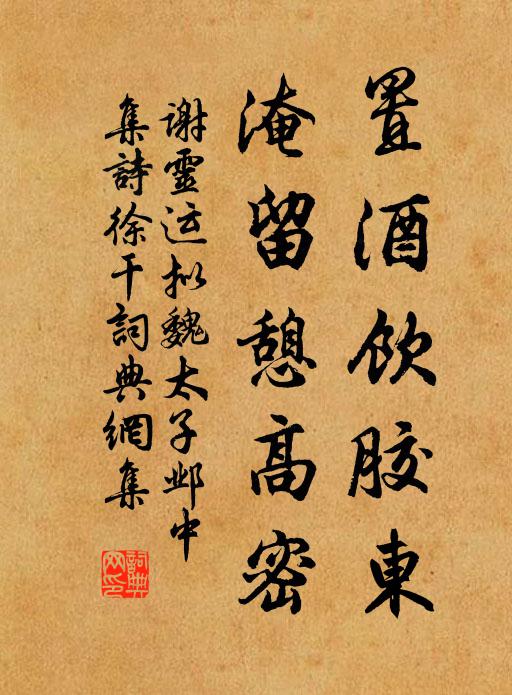 置酒飲膠東
淹留憩高密
謝靈运拟魏太子邺中
集詩徐干詞典網集
詞典网印